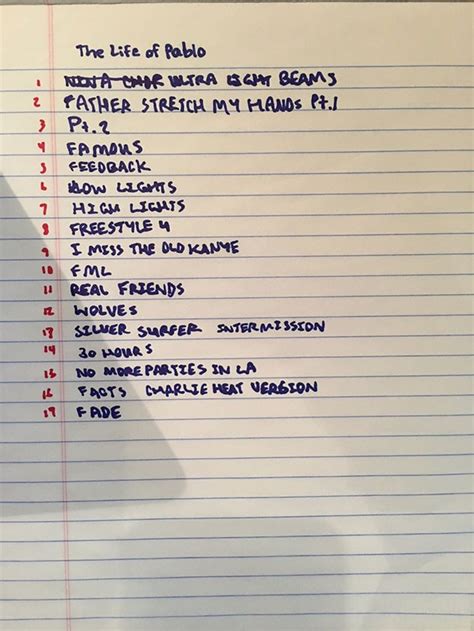 The Life of Pablo
1 NINA CHOP ULTRA LIGHT BEAMS
2 FATHER STRETCH MY HANDS Pt.1
3 Pt.2
4 FAMOUS
5 FEEDBACK
6 LOW LIGHTS
7 HIGH LIGHTS
8 FREESTYLE 4
9 I MISS THE OLD KANYE
10 FML
11 REAL FRIENDS
12 WOLVES
13 SILVER SURFER INTERMISSION
14 30 HOURS
15 NO MORE PARTIES IN LA
16 FACTS CHARLIE HEAT VERSION
17 FADE